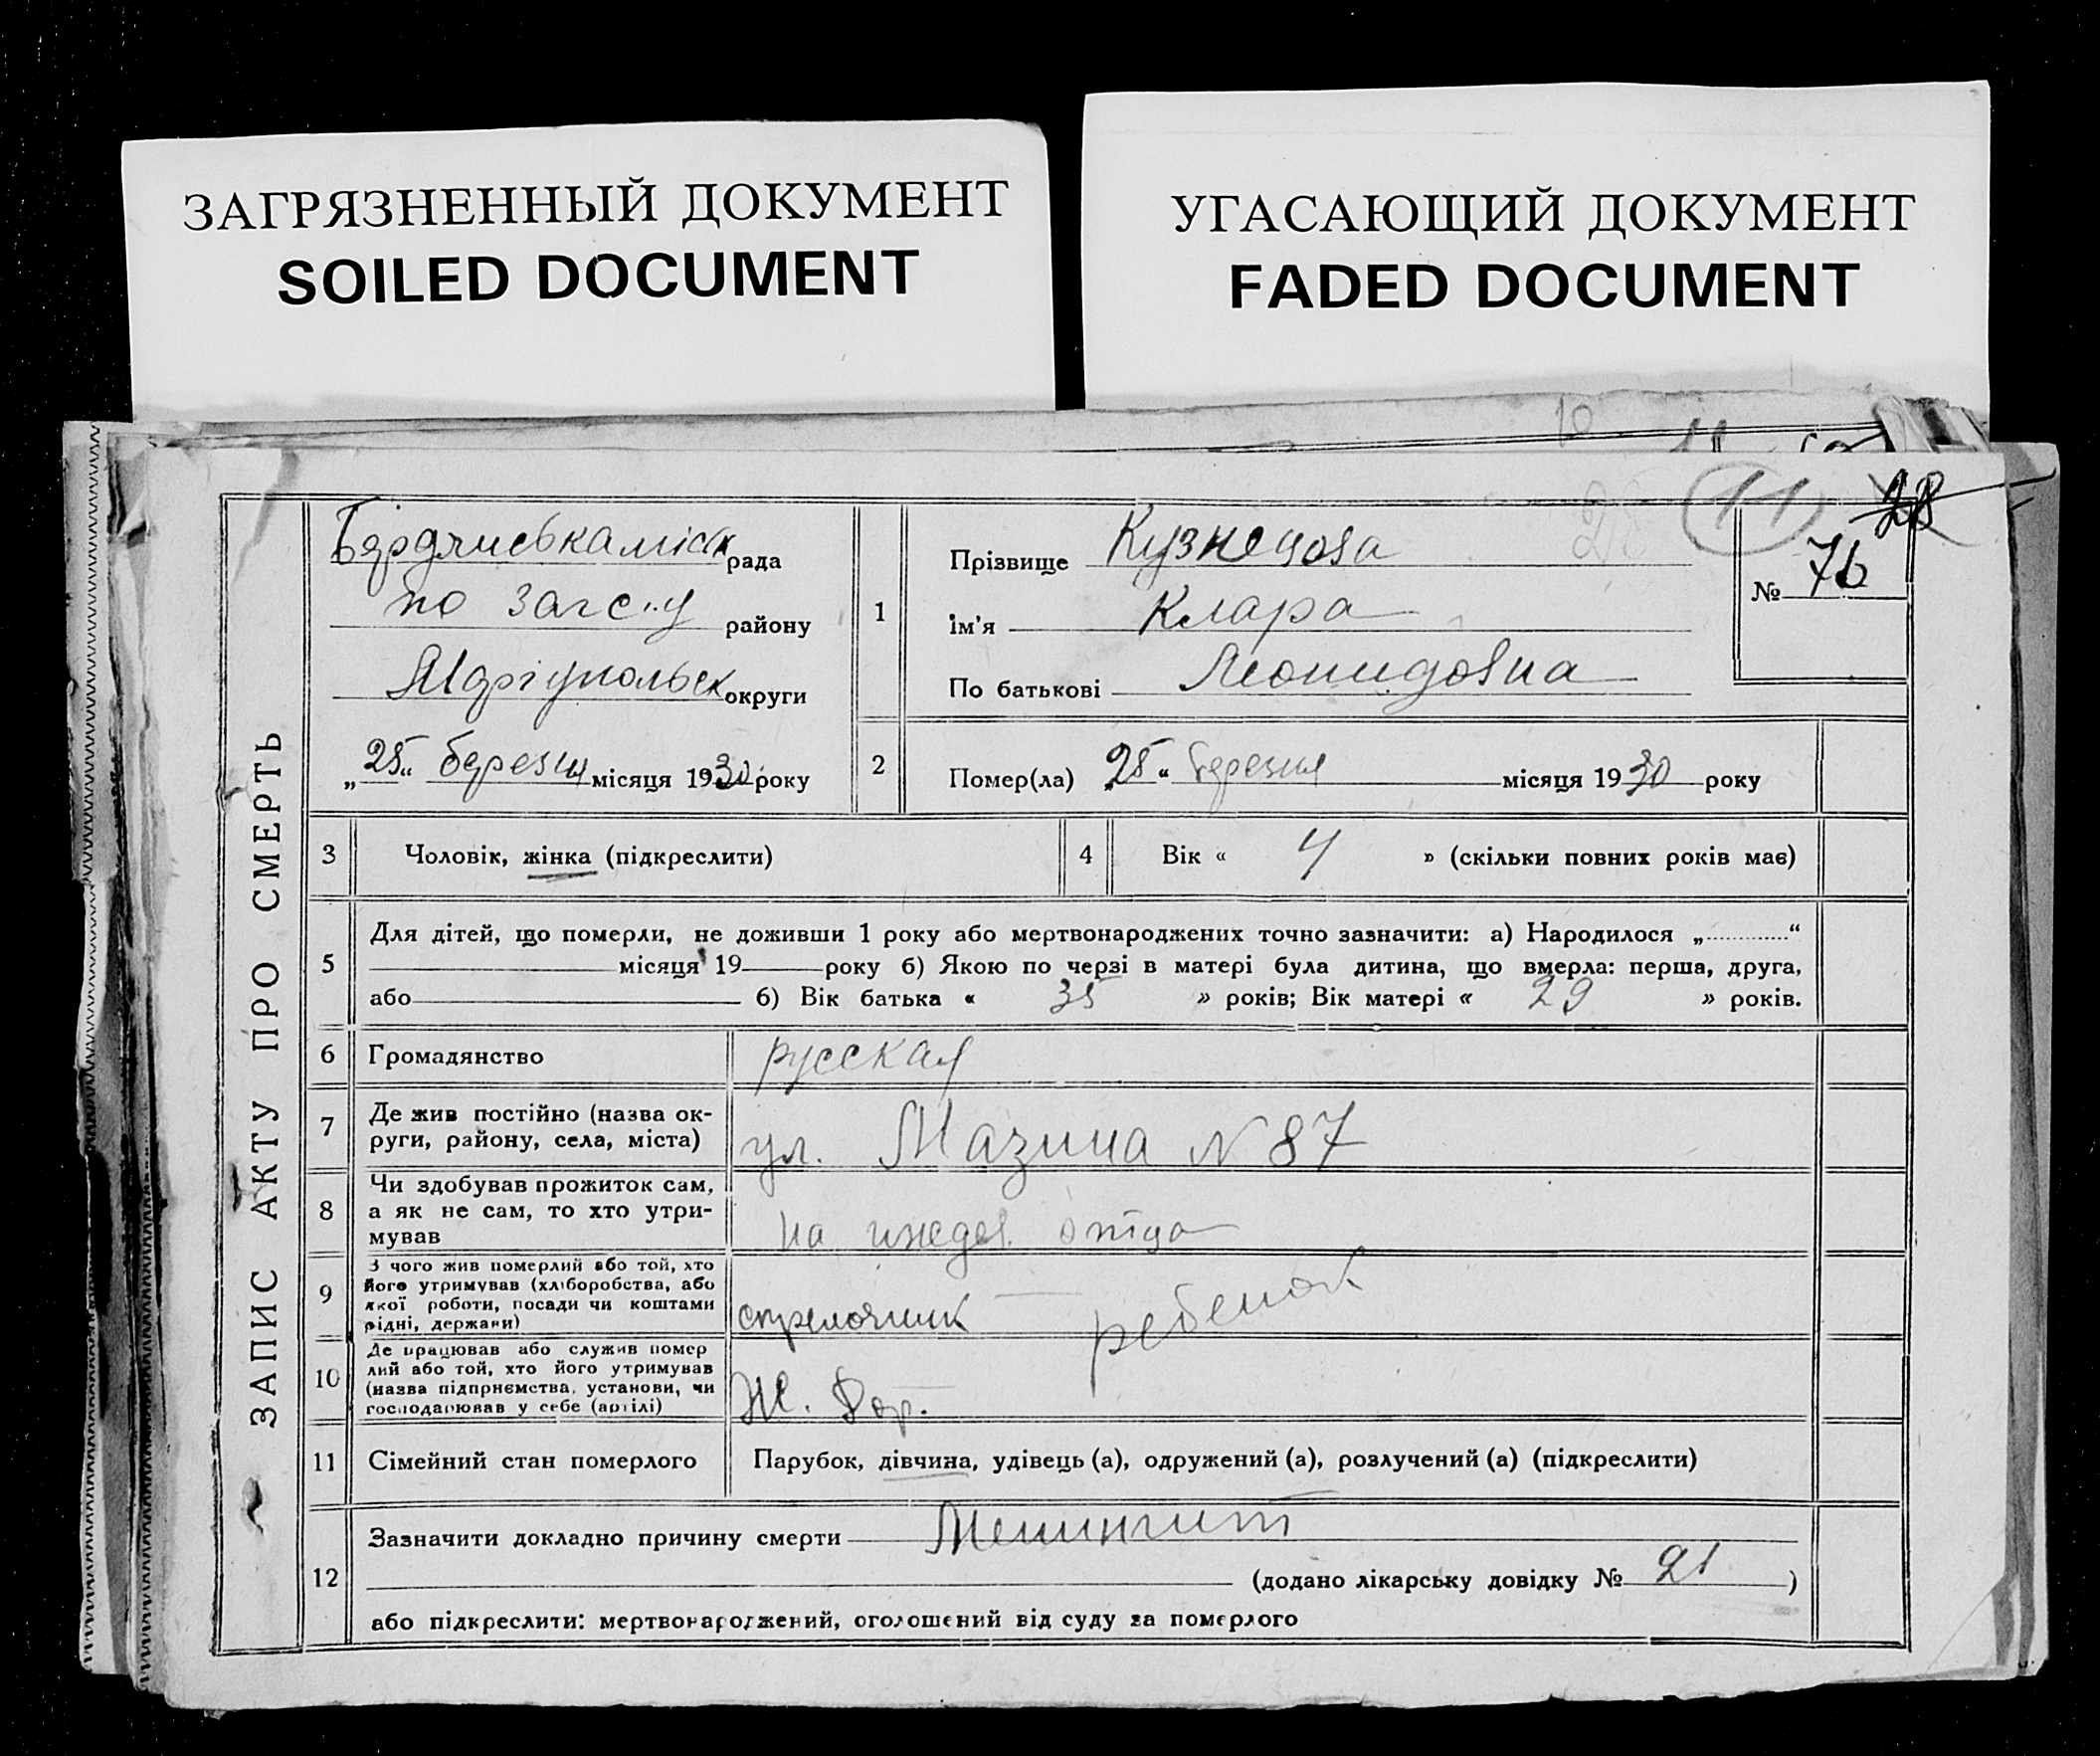 ЗАГРЯЗНЕННЫЙ ДОКУМЕНТ
SOILED DOCUMENT
УГАСАЮЩИЙ ДОКУМЕНТ
FADED DOCUMENT
10
11 28
ЗАПИС АКТУ ПРО СМЕРТЬ
Бердянська міськ рада
по загсу району
Маріупольськ округи
„25“ березня місяця 1930 року
1
Прізвище Кузнецова
Ім'я Клара
По батькові Леонидовна
№ 76
2 Помер(ла) „25“ березня місяця 1930 року
3 Чоловік, жінка (підкреслити)
4 Вік « 4 » (скільки повних років має)
5 Для дітей, що померли, не доживши 1 року або мертвонароджених точно зазначити: а) Народилося „ “
місяця 19 року б) Якою по черзі в матері була дитина, що вмерла: перша, друга,
або б) Вік батька « 35 » років; Вік матері « 29 » років.
6 Громадянство русская
7 Де жив постійно (назва ок-
руги, району, села, міста) ул. Мазина N 87
8 Чи здобував прожиток сам,
а як не сам, то хто утри-
мував на иждев. отца
9 З чого жив померлий або той, хто
його утримував (хліборобства, або
якої роботи, посади чи коштами
рідні, держави) стрелочник ребенок
10 Де працював або служив помер
лий або той, хто його утримував
(назва підприємства, установи, чи
господарював у себе (артілі) Ж. Дор.
11 Сімейний стан померлого Парубок, дівчина, удівець (а), одружений (а), розлучений (а) (підкреслити)
12 Зазначити докладно причину смерти Менингит
(додано лікарську довідку № 21 )
або підкреслити: мертвонароджений, оголошений від суду за померлого